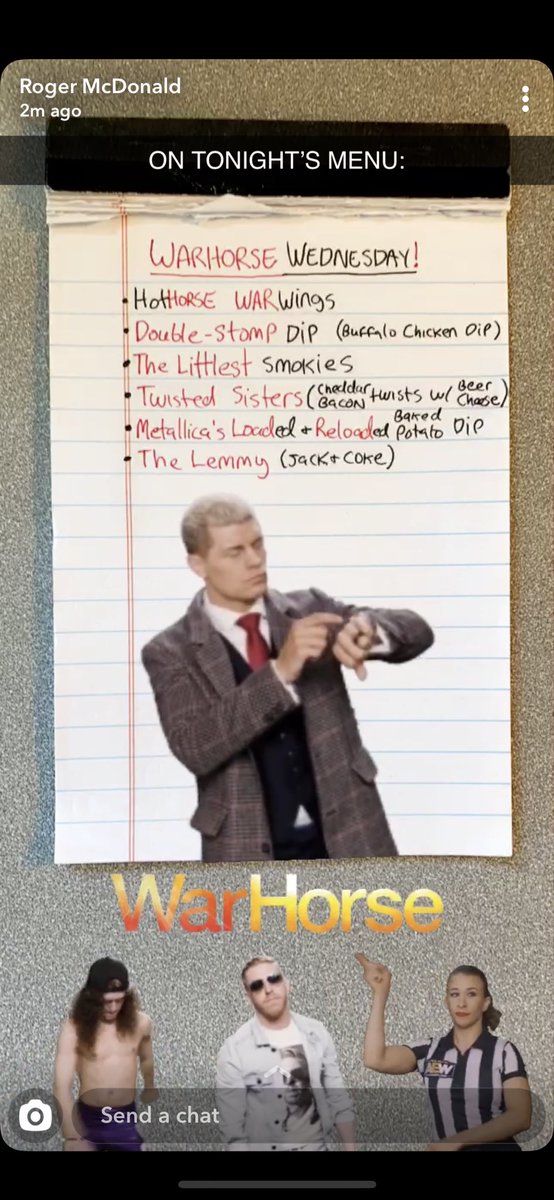 Roger McDonald
2m ago
ON TONIGHT'S MENU:
WARHORSE WEDNESDAY!
• HotHORSE WARWings
• Double-Stomp DiP (Buffalo Chicken DiP)
• The Littlest Smokies
• Twisted Sisters (Cheddar Bacon twists w/ Beer Cheese)
• Metallica's Loaded + Reloaded Baked Potato DiP
• The Lemmy (Jack + Coke)
WarHorse
AEW
Send a chat